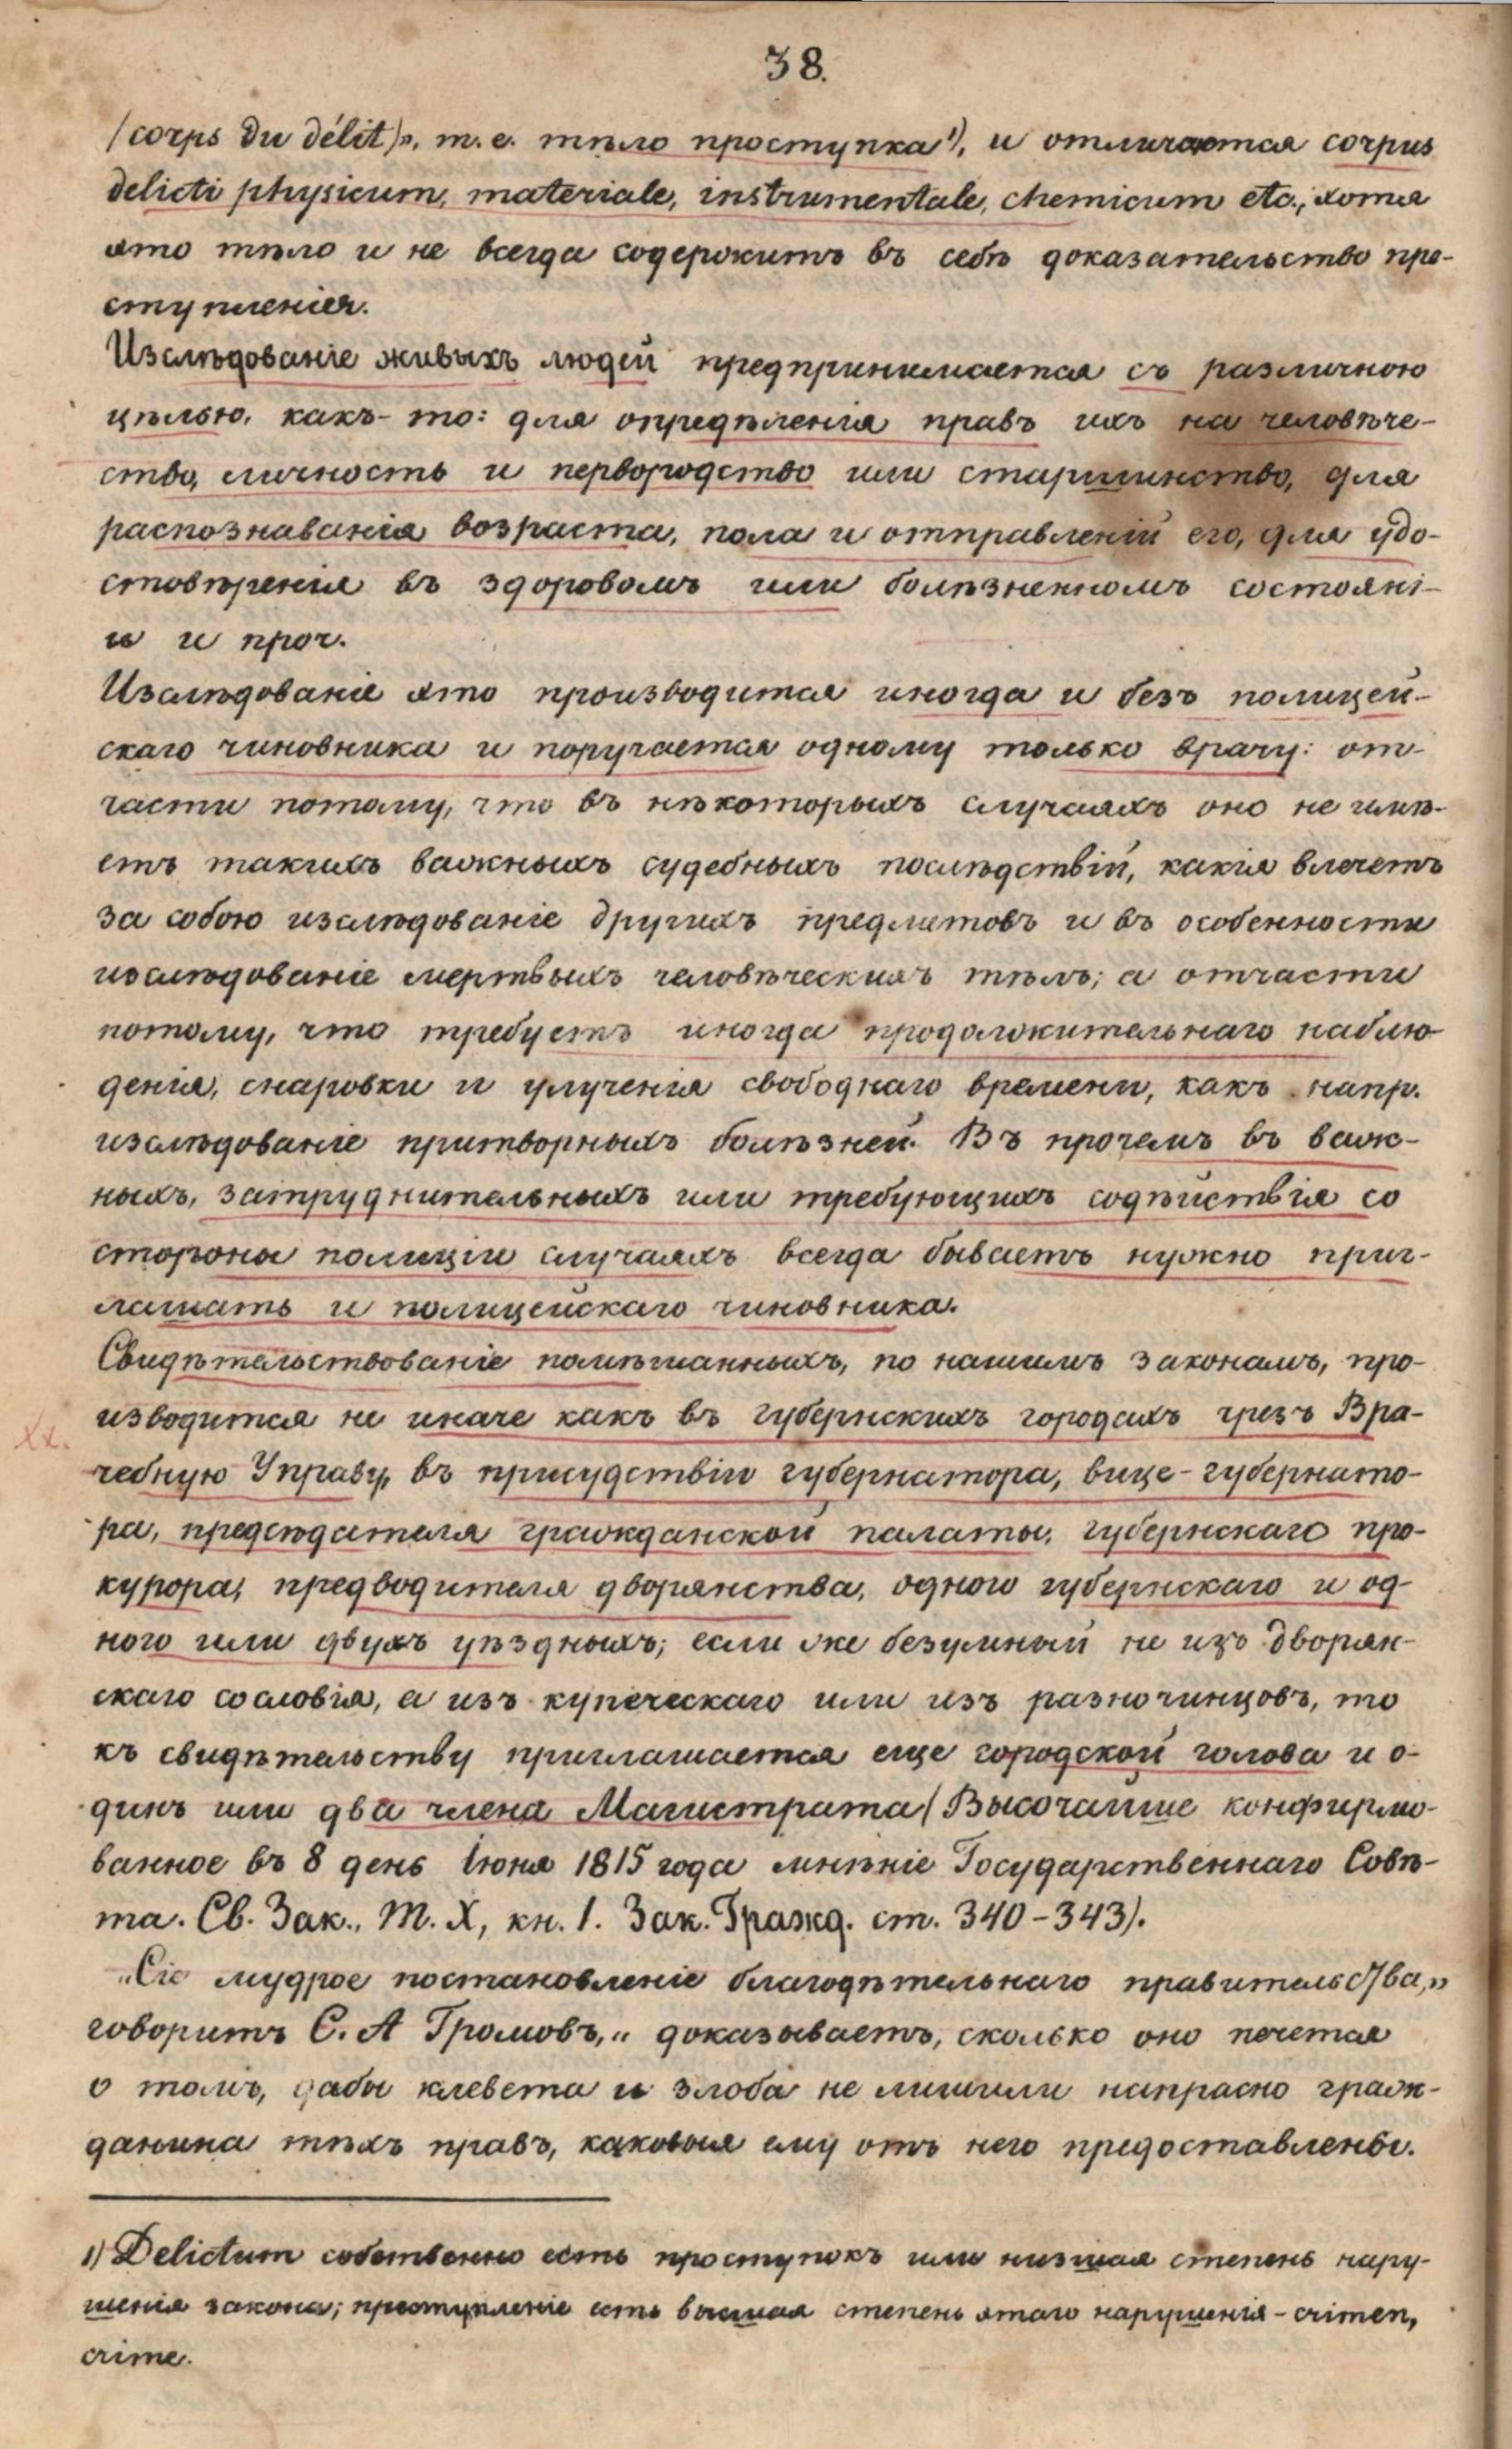 38.
(corps du délit)», т.е. тѣло проступка¹), и отличается corpus
delicti physicum, materiale, instrumentale, chemicum etc., хотя
это тѣло и не всегда содержитъ въ себѣ доказательство пре-
ступленія.
Изслѣдованіе живыхъ людей предпринимается съ различною
цѣлью, какъ-то: для опредѣленія правъ ихъ на человѣче-
ство, личность и первородство или старшинство, для
распознаванія возраста, пола и отправленій его, для удо-
стовѣренія въ здоровомъ или болѣзненномъ состояні-
и и проч.
Изслѣдованіе это производится иногда и безъ полицей-
скаго чиновника и поручается одному только врачу: от-
части потому, что въ нѣкоторыхъ случаяхъ оно не имѣ-
етъ такихъ важныхъ судебныхъ послѣдствій, какія влечетъ
за собою изслѣдованіе другихъ предметовъ и въ особенности
изслѣдованіе мертвыхъ человѣческихъ тѣлъ; а отчасти
потому, что требуетъ иногда продолжительнаго наблю-
денія, снаровки и улученія свободнаго времени, какъ напр.
изслѣдованіе притворныхъ болѣзней. Въ прочемъ въ важ-
ныхъ, затруднительныхъ или требующихъ содѣйствія со
стороны полиціи случаяхъ всегда бываетъ нужно приг-
лашать и полицейскаго чиновника.
Свидѣтельствованіе помѣшанныхъ, по нашимъ законамъ, про-
изводится не иначе какъ въ губернскихъ городахъ чрезъ Вра-
чебную Управу, въ присудствіи губернатора, вице-губернато-
ра, предсѣдателя гражданской палаты, губернскаго про-
курора, предводителя дворянства, одного губернскаго и од-
ного или двухъ уѣздныхъ; если же безумный не изъ дворян-
скаго сословія, а изъ купеческаго или изъ разночинцовъ, то
къ свидѣтельству приглашается еще городской голова и о-
динъ или два члена Магистрата (Высочайше конфирмо-
ванное въ 8 день Іюня 1815 года мнѣніе Государственнаго Совѣ-
та. Св. Зак., Т. X, кн. 1. Зак. Гражд. ст. 340-343).
„Сіе мудрое постановленіе благодѣтельнаго правительства,"
говоритъ С. А Громовъ, „доказываетъ, сколько оно печется
о томъ, дабы клевета и злоба не лишили напрасно граж-
данина тѣхъ правъ, каковыя ему отъ него предоставлены.
1) Delictum собственно есть проступокъ или низшая степень нару-
шенія закона; преступленіе есть высшая степень этаго нарушенія - crimen,
crime.